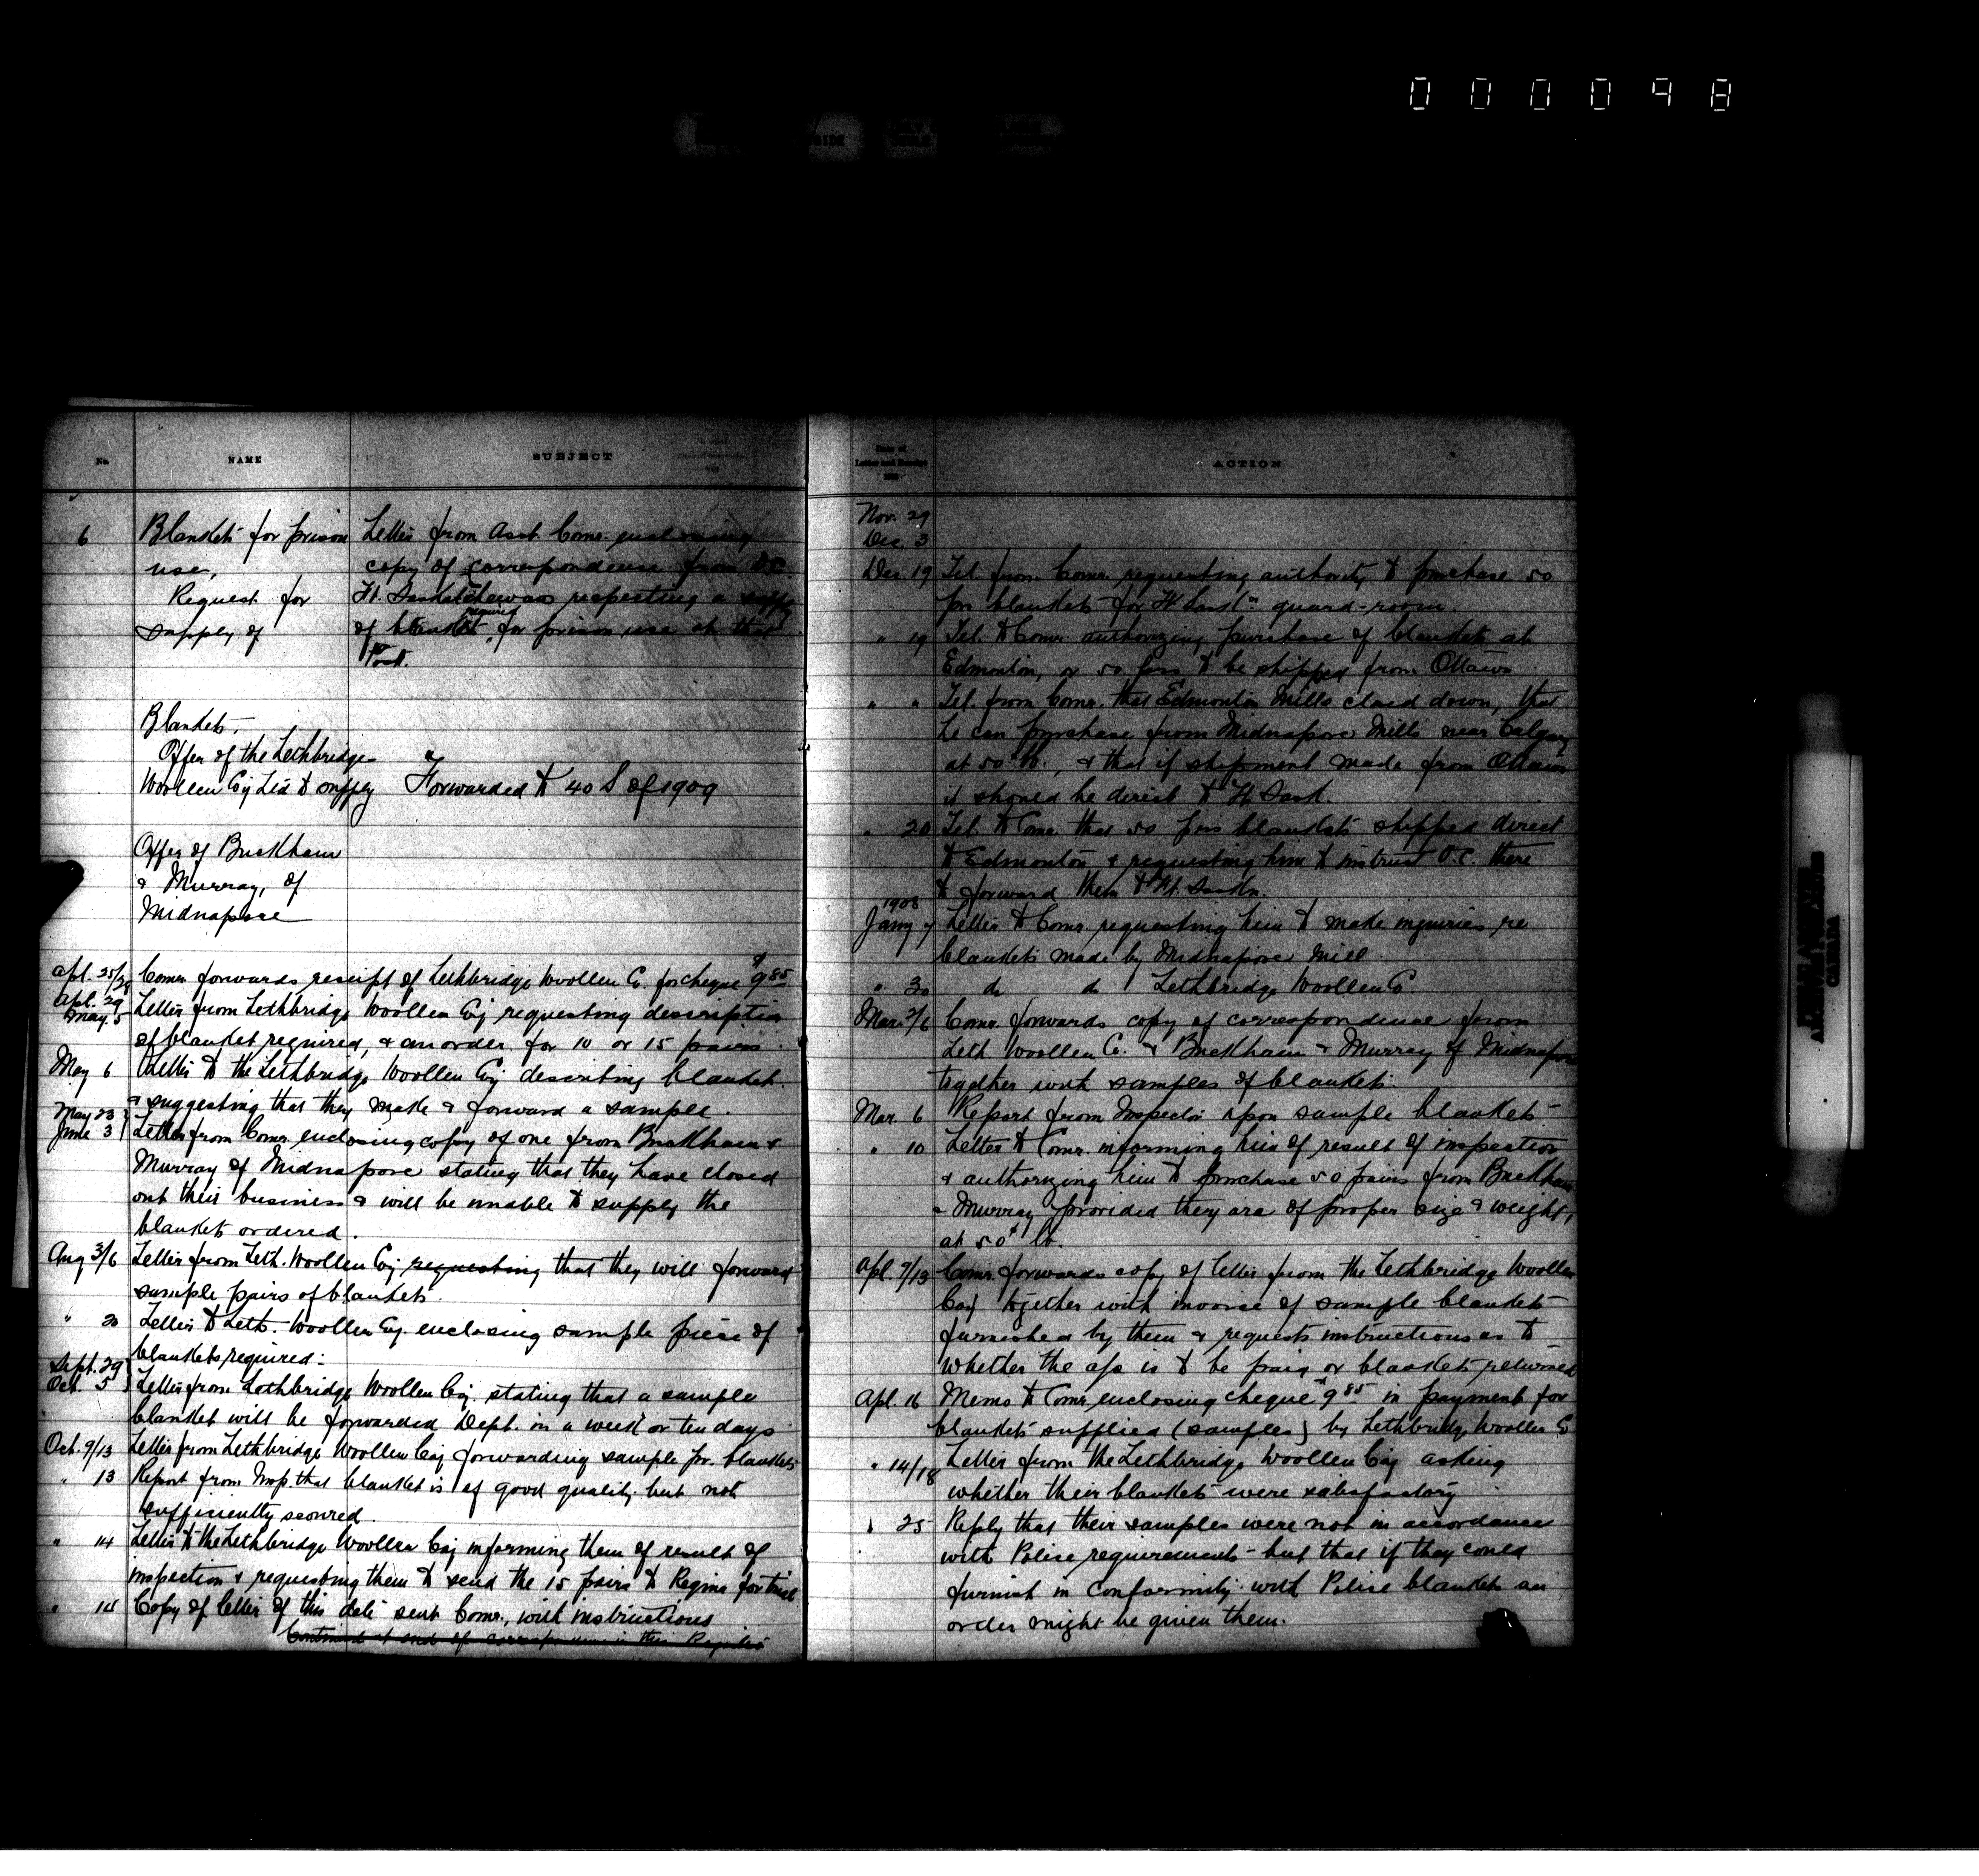 000098
No.
NAME
SUBJECT
6
Blankets for prison
use,
Request for
supply of
Letter from Asst. Comr. enclosing
copy of correspondence from O.C.
Ft. Saskatchewan respecting a supply
required
of blankets for prison use at that
Post.
Blankets,
Offer of the Lethbridge
Woollen Coy Ltd to supply
Forwarded to 40 S of 1909
Offer of Buckham
& Murray, of
Midnapore
Apl. 25/28 Comr. forwards receipt of Lethbridge Woollen Co. for cheque $9 85
Apl. 29
May 5
Letter from Lethbridge Woollen Coy requesting description
of blanket required, & an order for 10 or 15 pairs.
May 6 Letter to the Lethbridge Woollen Coy describing blanket
& suggesting that they make & forward a sample.
May 23
June 3
Letter from Comr. enclosing copy of one from Buckham &
Murray of Midnapore stating that they have closed
out their business & will be unable to supply the
blankets ordered.
Aug 3/6 Letter from Leth. Woollen Coy requesting that they will forward
sample pairs of blankets.
" 20 Letter to Leth. Woollen Coy. enclosing sample piece of
blankets required:
Sept. 29
Oct. 5
Letter from Lethbridge Woollen Coy. stating that a sample
blanket will be forwarded Dept. in a week or ten days
Oct. 9/13 Letter from Lethbridge Woollen Coy forwarding sample pr. blankets
" 13 Report from Insp. that blanket is of good quality but not
sufficiently scoured.
" 14 Letter to the Lethbridge Woollen Coy informing them of result of
inspection & requesting them to send the 15 pairs to Regina for trial
" 14 Copy of letter of this date sent Comr., with instructions
Continued at end of correspondence in this Register
Date of
Letter and Receipt
ACTION
Nov. 29
Dec. 3
Dec 19 Tel from Comr. requesting authority to purchase 50
prs blankets for Ft Sask'n guard-room.
" 19 Tel. to Comr. authorizing purchase of blankets at
Edmonton, or 50 prs to be shipped from Ottawa
" " Tel. from Comr. that Edmonton Mills closed down, that
he can purchase from Midnapore Mills near Calgary
at 50 lb., & that if shipment made from Ottawa
it should be direct to Ft Sask.
" 20 Tel. to Comr. that 50 prs blankets shipped direct
to Edmonton & requesting him to instruct O.C. there
to forward them to Ft. Saskn.
1908
Jany 7 Letter to Comr. requesting him to make inquiries re
blankets made by Midnapore Mill.
" 30 do do Lethbridge Woollen Co.
Mar. 2/6 Comr. forwards copy of correspondence from
Leth Woollen Co. & Buckham & Murray of Midnapore
together with samples of blankets.
Mar. 6 Report from Inspector upon sample blankets
" 10 Letter to Comr. informing him of result of inspection
& authorizing him to purchase 50 pairs from Buckham
& Murray provided they are of proper size & weight,
at 50¢ lb.
Apl. 9/13 Comr. forwards copy of letter from the Lethbridge Woollen
Coy together with invoice of sample blankets
furnished by them & requests instructions as to
whether the a/c is to be paid or blankets returned
Apl. 16 Memo to Comr. enclosing cheque $9 85 in payment for
blankets supplied (samples) by Lethbridge Woollen Co
" 14/18 Letter from the Lethbridge Woollen Coy asking
whether their blankets were satisfactory
" 25 Reply that their samples were not in accordance
with Police requirements - but that if they could
furnish in conformity with Police blankets an
order might be given them.